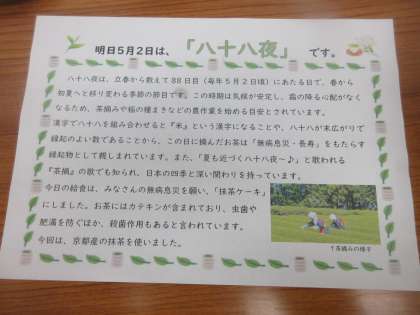 明日5月2日は、「八十八夜」です。
八十八夜は、立春から数えて88日目（毎年5月2日頃）にあたる日で、春から
初夏へと移り変わる季節の節目です。この時期は気候が安定し、霜の降る心配がなく
なるため、茶摘みや稲の種まきなどの農作業を始める目安とされています。
漢字で八十八を組み合わせると『米』という漢字になることや、八十八が末広がりで
縁起のよい数であることから、この日に摘んだお茶は「無病息災・長寿」をもたらす
縁起物として親しまれています。また、「夏も近づく八十八夜～♪」と歌われる
『茶摘』の歌でも知られ、日本の四季と深い関わりを持っています。
今日の給食は、みなさんの無病息災を願い、「抹茶ケーキ」
にしました。お茶にはカテキンが含まれており、虫歯や
肥満を防ぐほか、殺菌作用もあると言われています。
今回は、京都産の抹茶を使いました。
↑茶摘みの様子